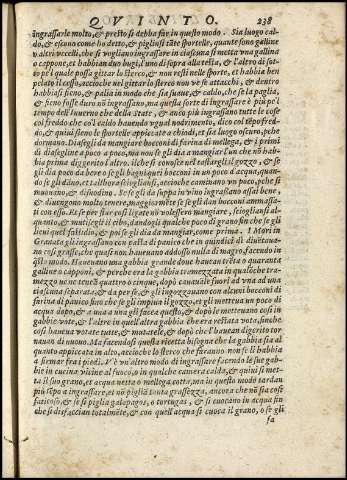 QVINTO. 238
ingrassarle molto, & presto si debba far, in questo modo. Sia luogo cal-
do, & escono come ho detto, & piglinsi tãte sportelle, quante sono galline
v altri vccelli, che si vogliano ingrassare in ciascuna si metta vna gallina
o cappone, et habbian duo bugi, l'uno di sopra alla testa, & l'altro di sot-
to pe'l quale possa gittar lo sterco, & non resti nelle sporte, et habbia ben
pelato il cesso, accioche nel gittar lo sterco non ve se attacchi, & dentro
habbiasi fieno, & palia in modo che sia suaue, & caldo, che se la paglia,
& fieno fosse duro nõ ingrassano, ma questa sorte di ingrassare è piu pe'l
tempo dell'inuerno che della State, & anco piu ingrassano tutte le cose
col freddo che co'l caldo hauendo vgual nodrimento, dico co'l tẽpo fred-
do, & quiui sieno le sportelle appiccate a chiodi, et sia luogo oscuro, pche
dormano. Diasegli da mangiare bocconi di farina di mellega, & i primi
di diasegline a poco a poco, ma non se gli dia a mangiar l'un che nõ hab-
bia prima diggerito l'altro. ilche si conosce nel tastargli il gozzo, & se gli
dia poco da bere o se gli bagni quei bocconi in vn poco d'acqua, quand
se gli diano, et tall hora sciogliansi, accioche caminano vn poco, pche si
muouano, & disfocano. Se se gli da suppa in vino ingrassano assai bene,
& diuengono molto tenere, maggiormẽte se se gli dan bocconi ammassa-
ti con esso. Et se per star così ligate nõ volessero mangiare, sciogliansi al-
quanto, & mutisegli il cibo, dandogli qualche poco di grano sin che se gli
lieui quel fastidio, & poi se gli dia da mangiar, come prima. I Mori in
Granata gli ingrassano con pasta di panico che in quindici dì diuẽtaua-
no così grasse, che quasi non haueuano addosso nulla di magro, facendo in
q̃sto modo. Haueuano vna gabbia grande doue haueuan trẽta o quaranta
galline o capponi, & perche era la gabbia tramezzata in qualche tra-
mezzo ue ne teneã quattro o cinque, dopò cauauale fuori ad vna ad vna
ciascuna separata, & da per se, & gli ingozzauano con alcuni bocconi di
farina di panico sino che se gli impiua il gozzo, et gli metteua un poco di
acqua dopò, & a una a una gli facea questo, & dopò le metteuano così in
gabbie vote, & l'altre in quell'altra gabbia che era restata vota, sinche
così haueua votate parte, & mutatele, & dopò che l'haueano digerito tor-
nauan di nuouo. Ma facendosi questa ricetta bisogna che la gabbia sia al
quanto appiccata in alto, accioche lo sterco che faranno non se li habbia
a fermar fra i piedi. V'è vn'altro modo di ingrassare facendo le sue gab-
bie in cucina vicine al fuoco, o in qualche camera calda, & quiui si met-
ta il suo grano, et acqua netta o mellega cotta, ma in questo modo tardan
piu tẽpo a ingrassare, et nõ piglia tanta grassezza, ancora che nõ sia così
faticoso, & se si piglia galapagos, o tortugas, & si cuocano in acqua sin
che si disfaccian totalmẽte, & con quell'acqua si cuoca il grano, o se gli
fa